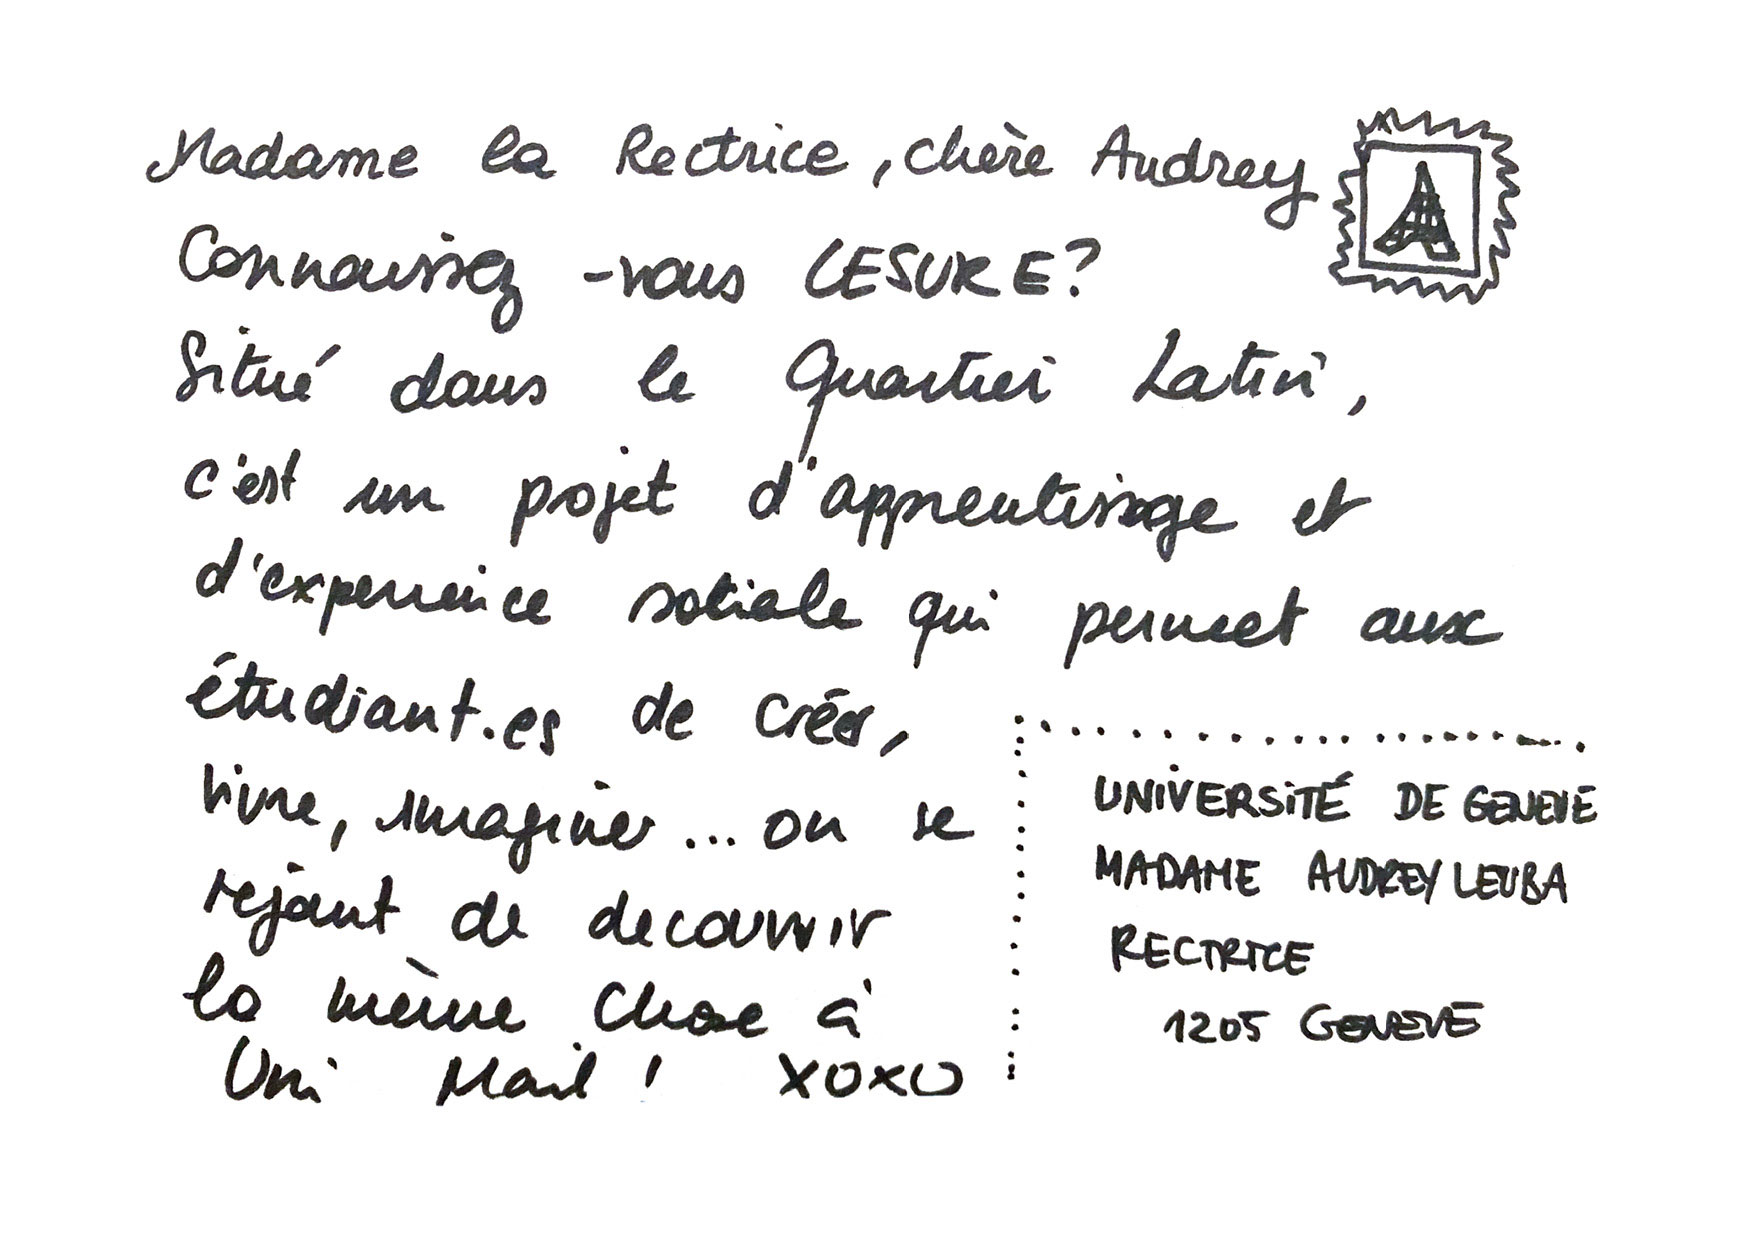 Madame la Rectrice, chère Audrey
Connaissez-vous CESURE?
Situé dans le Quartier Latin,
c'est un projet d'apprentissage et
d'experience sociale qui permet aux
étudiant.es de créer,
vivre, imaginer... on se
rejouit de decouvrir
la même chose à
Uni Mail! XOXO
UNIVERSITÉ DE GENEVE
MADAME AUDREY LEUBA
RECTRICE
1205 GENEVE